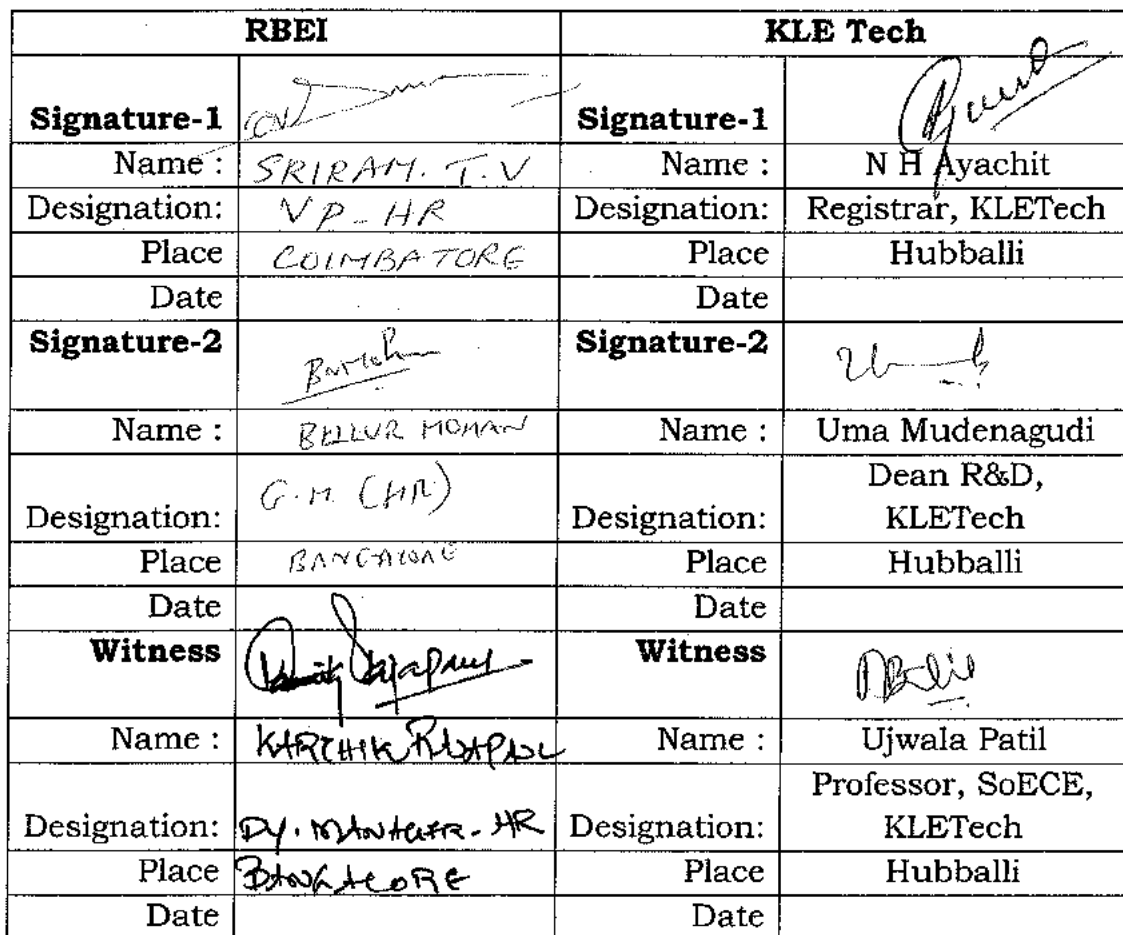 RBEI KLE Tech
Signature-1 Signature-1
Name : SRIRAM. T.V Name : N H Ayachit
Designation: VP-HR Designation: Registrar, KLETech
Place COIMBATORE Place Hubballi
Date Date
Signature-2 Signature-2
Name : BELLUR MOHAN Name : Uma Mudenagudi
Dean R&D,
Designation: G.M (HR) Designation: KLETech
Place BANGALORE Place Hubballi
Date Date
Witness Witness
Name : KARTHIK RAJAPAUL Name : Ujwala Patil
Professor, SoECE,
Designation: DY. MANAGER-HR Designation: KLETech
Place BANGALORE Place Hubballi
Date Date